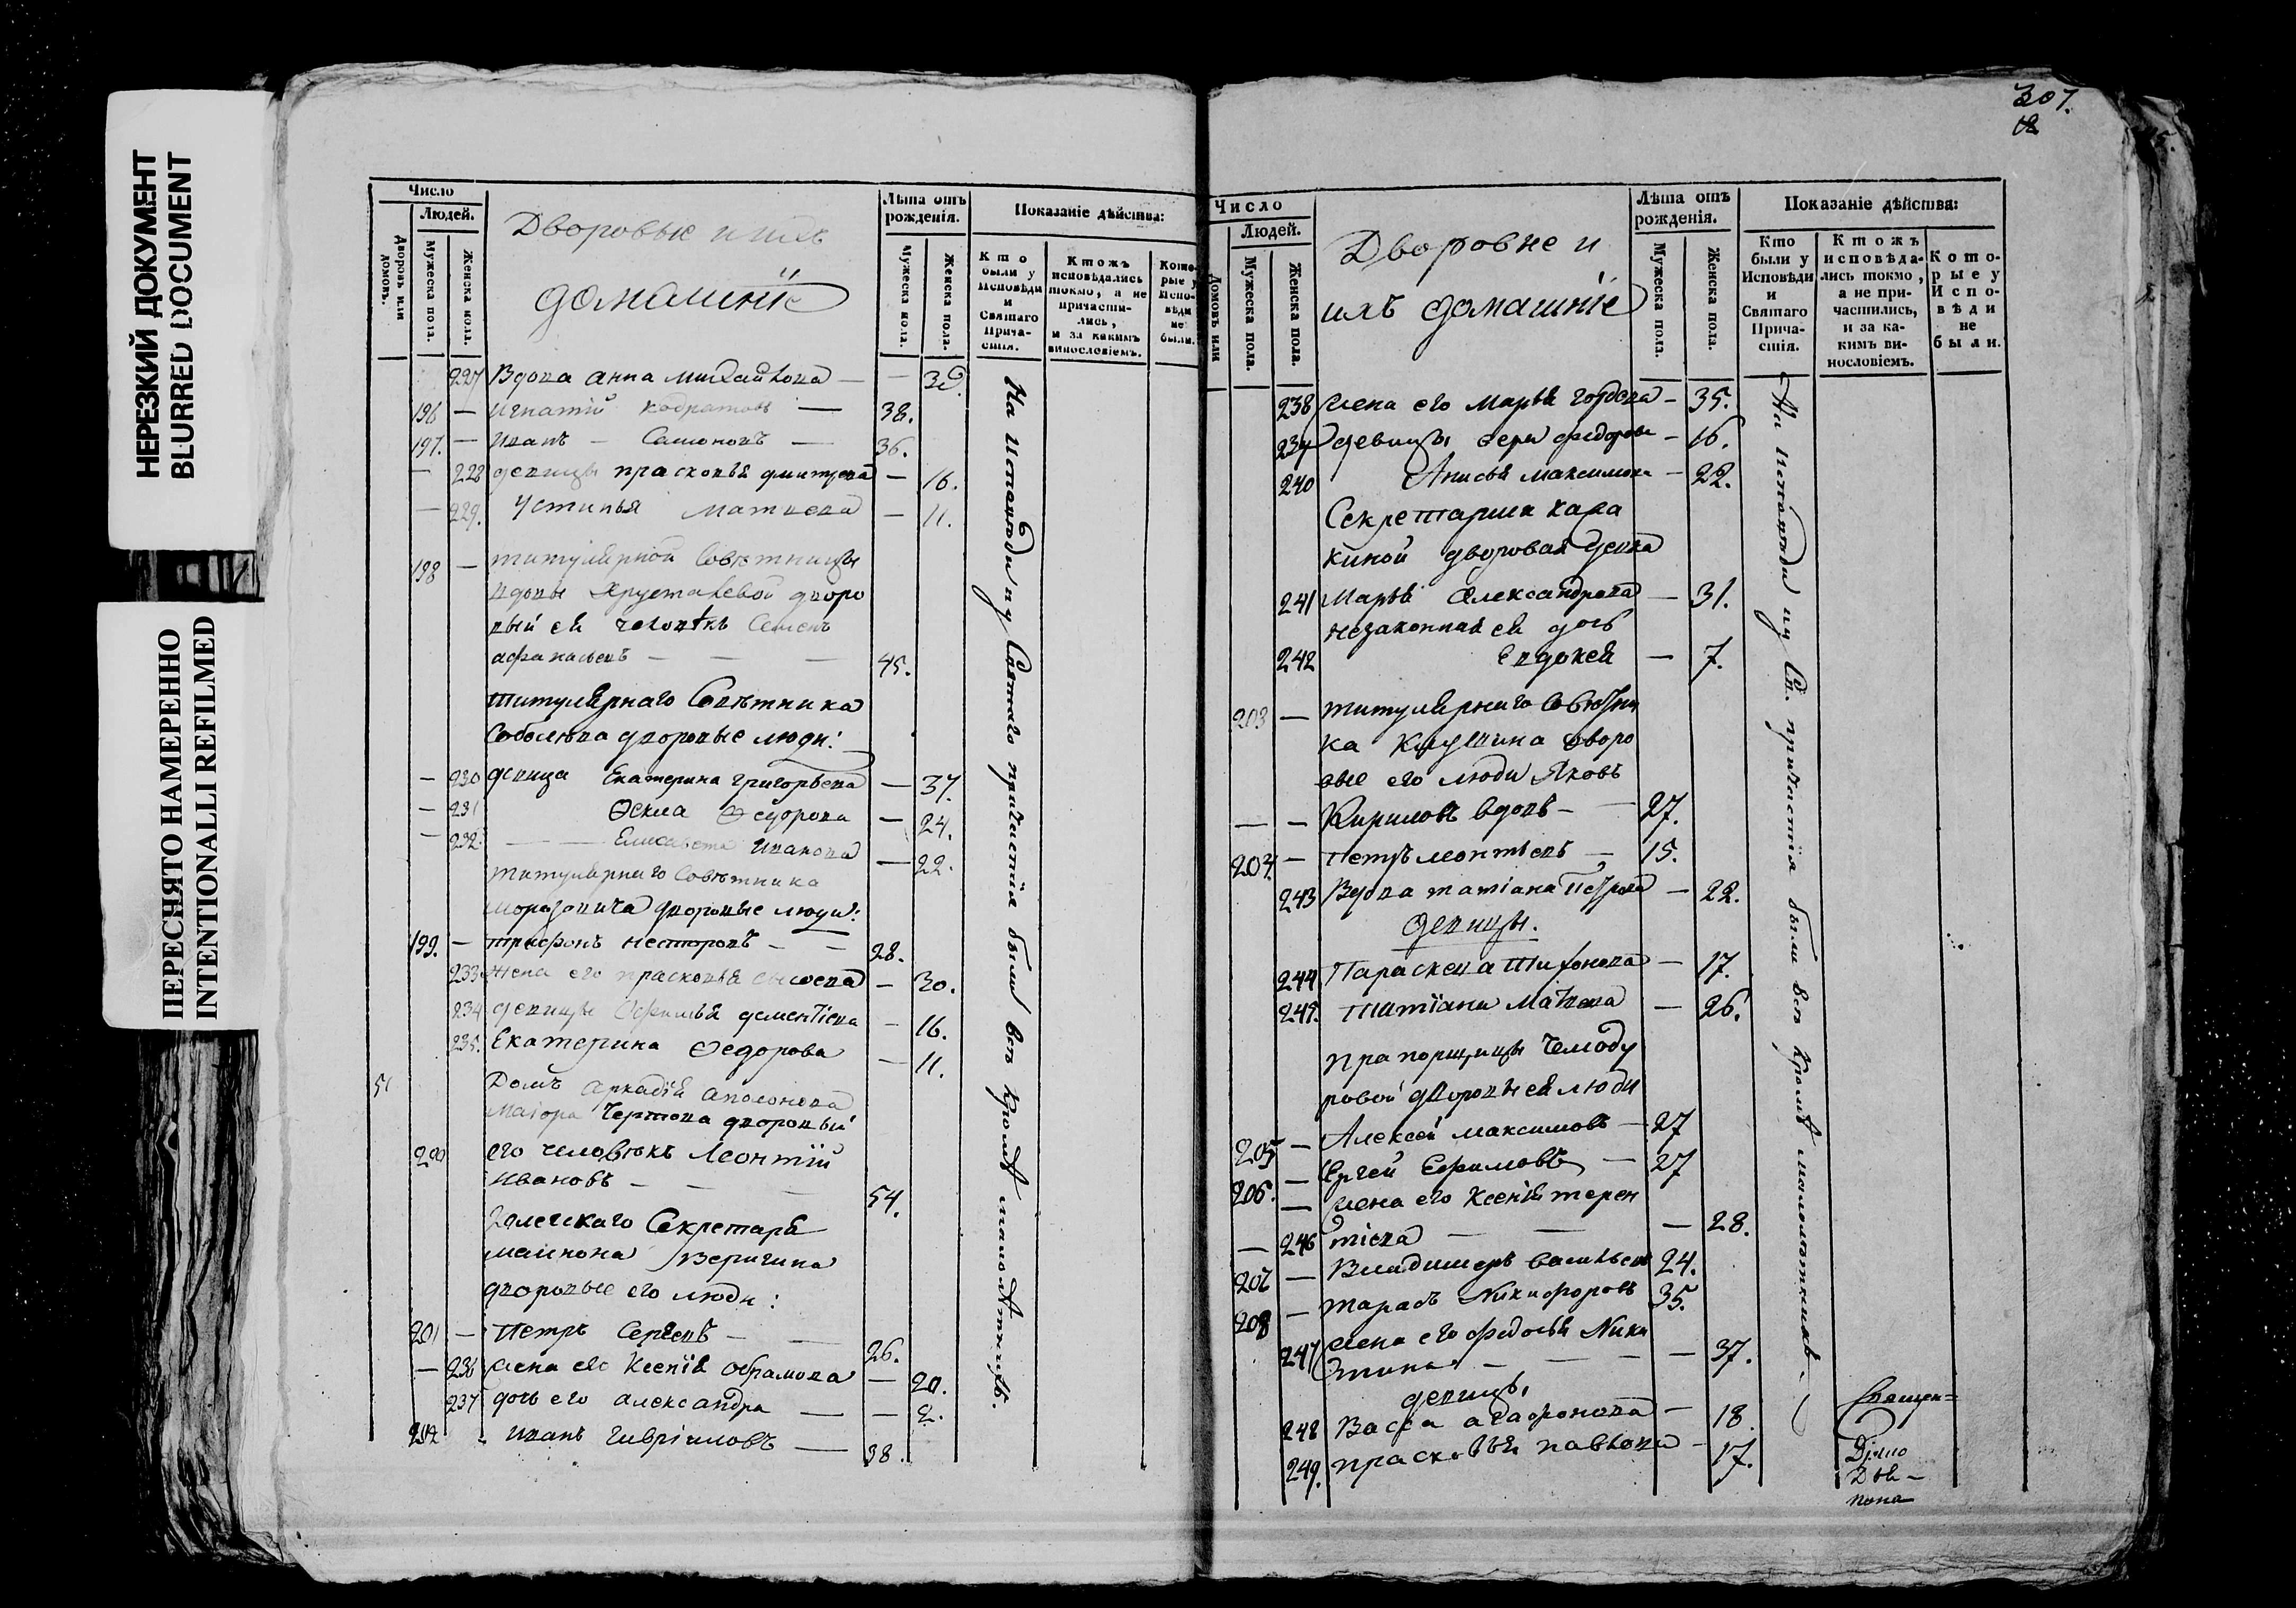 НЕРЕЗКИЙ ДОКУМЕНТ
BLURRED DOCUMENT
ПЕРЕСНЯТО НАМЕРЕННО
INTENTIONALLI REFILMED
Число
Людей.
Дворовъ или домовъ.
Мужеска пола.
Женска пола.
Дворовые и ихъ
домашнїе
Лѣта отъ рожденія.
Мужеска пола.
Женска пола.
Показаніе дѣйства:
Кто были у Исповѣди и Святаго Причастія.
Ктожъ исповѣдались токмо, а не причастились, и за какимъ винословіемъ.
Которые у Исповѣди не были.
227 Вдова анна михайлова —
196 — игнатій кодратовъ — 38.
197. — Иванъ — Самоновъ — 36.
— 228 девицы прасковья дмитрева — 16.
— 229. Устинья Матвеева — 11.
198 — титулярной Совѣтницы
вдовы Хрусталевой дворо
вый ея человѣкъ Семенъ
афанасьевъ — — — 45.
титулярнаго Совѣтника
Соболева дворовые люди:
— 230 девица Екатерина григорьева — 37.
— 231 Ѳекла Ѳедорова — 24.
— 232. — — Елисавета Иванова — 22.
титулярнаго Совѣтника
дворовые люди:
199. — трифонъ несторовъ — — 28.
233 жена его прасковья — 30.
234 девицы дементіева — 16.
235. Екатерина Ѳедорова — 11.
51 Домъ аркадія
Маіора Чертова дворовый
200 его человѣкъ Леонтій
Ивановъ — — — 54.
Секретаря
Веригина
дворовые его люди:
201 — Петръ Сергеевъ — — 26.
— 236 жена его Ксенія абрамова — 20.
237 дочь его александра — — 2.
202 Иванъ Гавріиловъ — 38.
На Исповѣди и у Святаго причастія были всѣ кромѣ малолѣтныхъ.
307.
Число
Людей.
Домовъ или
Мужеска пола.
Женска пола.
Дворовые и
ихъ домашнїе
Лѣта отъ рожденія.
Мужеска пола.
Женска пола.
Показаніе дѣйства:
Кто были у Исповѣди и Святаго Причастія.
Ктожъ исповѣдались токмо, а не причастились, и за какимъ винословіемъ.
Которые у Исповѣди не были.
238 жена его Марья — 35.
239 девицы федорова — 16.
240 Анисья Максимова — 22.
Секретарши Кара
киной дворовая девка
241 Марья Александрова — 31.
незаконная ея дочь
242 Евдокея — 7.
203 — титулярнаго Совѣтни
ка дворо
вые его люди Яковъ
— — Кириловъ вдовъ — — 27.
204. — Петръ леонтьевъ — 15.
243 Вдова татіана Петрова — 22.
девицы.
244 Параскева — 17.
245. татїана Матвеева — 26.
прапорщицы Чемоду
ровой дворовые ея люди
205 — Алексей Максимовъ — 27
206. — Сергей Ефимовъ — 27
— жена его Ксенія терен
— 246 тіева — — — 28.
207 — Владимеръ васильевъ 24.
208 — тарасъ Никифоровъ 35.
247 жена его федосья Ники
тина — — — — 37.
девицы
248 Васса агафонова — 18
249. прасковья павлова — 17.
На Исповѣди и у Св. причастія были всѣ кромѣ малолѣтныхъ